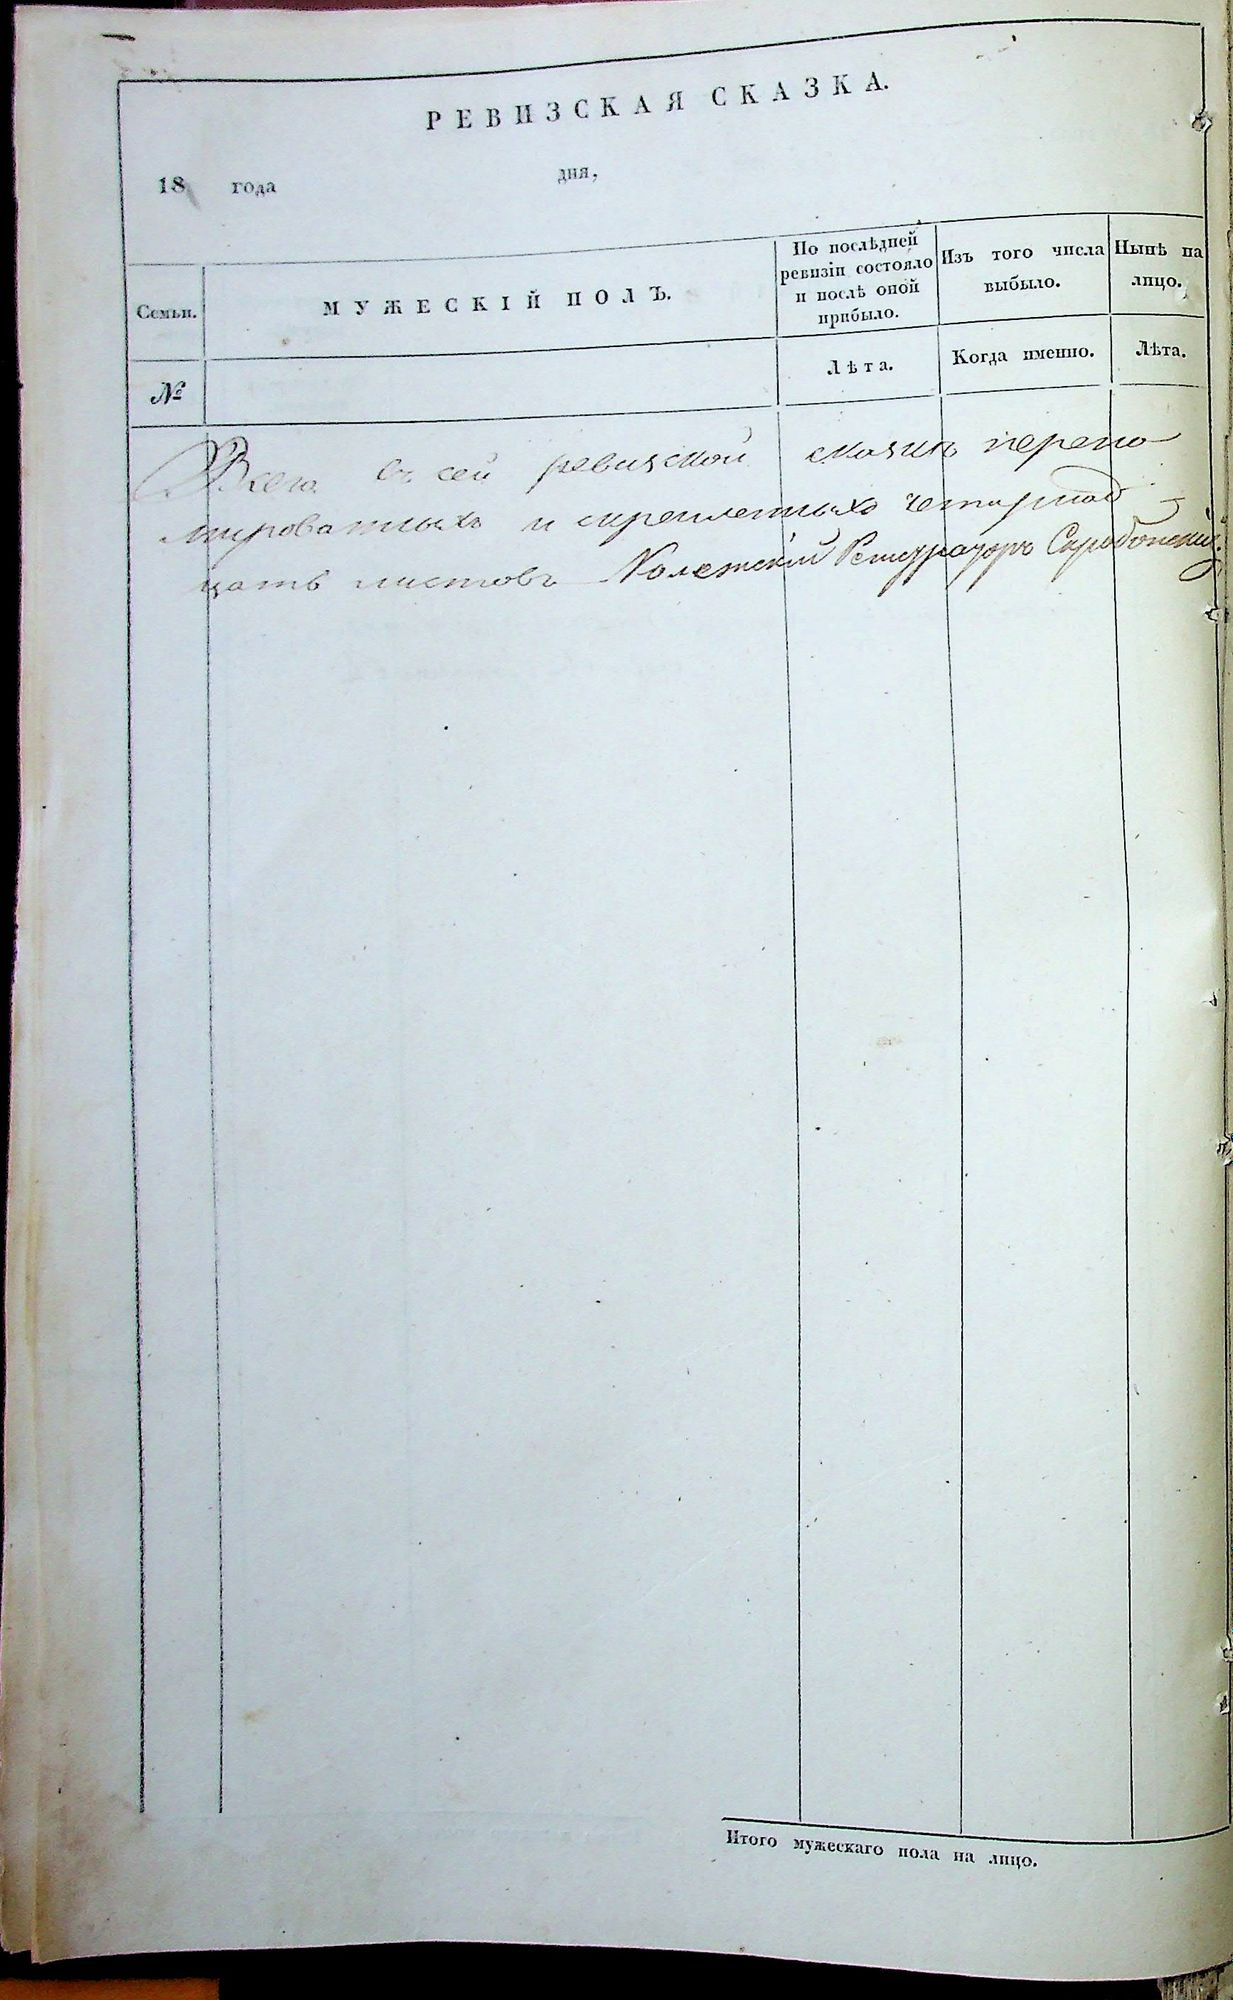 РЕВИЗСКАЯ СКАЗКА.
18 года дня,
Семьи.
МУЖЕСКІЙ ПОЛЪ.
По послѣдней
ревизіи состояло
и послѣ оной
прибыло.
Изъ того числа
выбыло.
Нынѣ на
лицо.
№
Лѣта.
Когда именно.
Лѣта.
Всего въ сей ревизской сказкѣ перено
мированныхъ и скрепленныхъ четырнад
цать листовъ Колежскій Регистраторъ
Итого мужескаго пола на лицо.